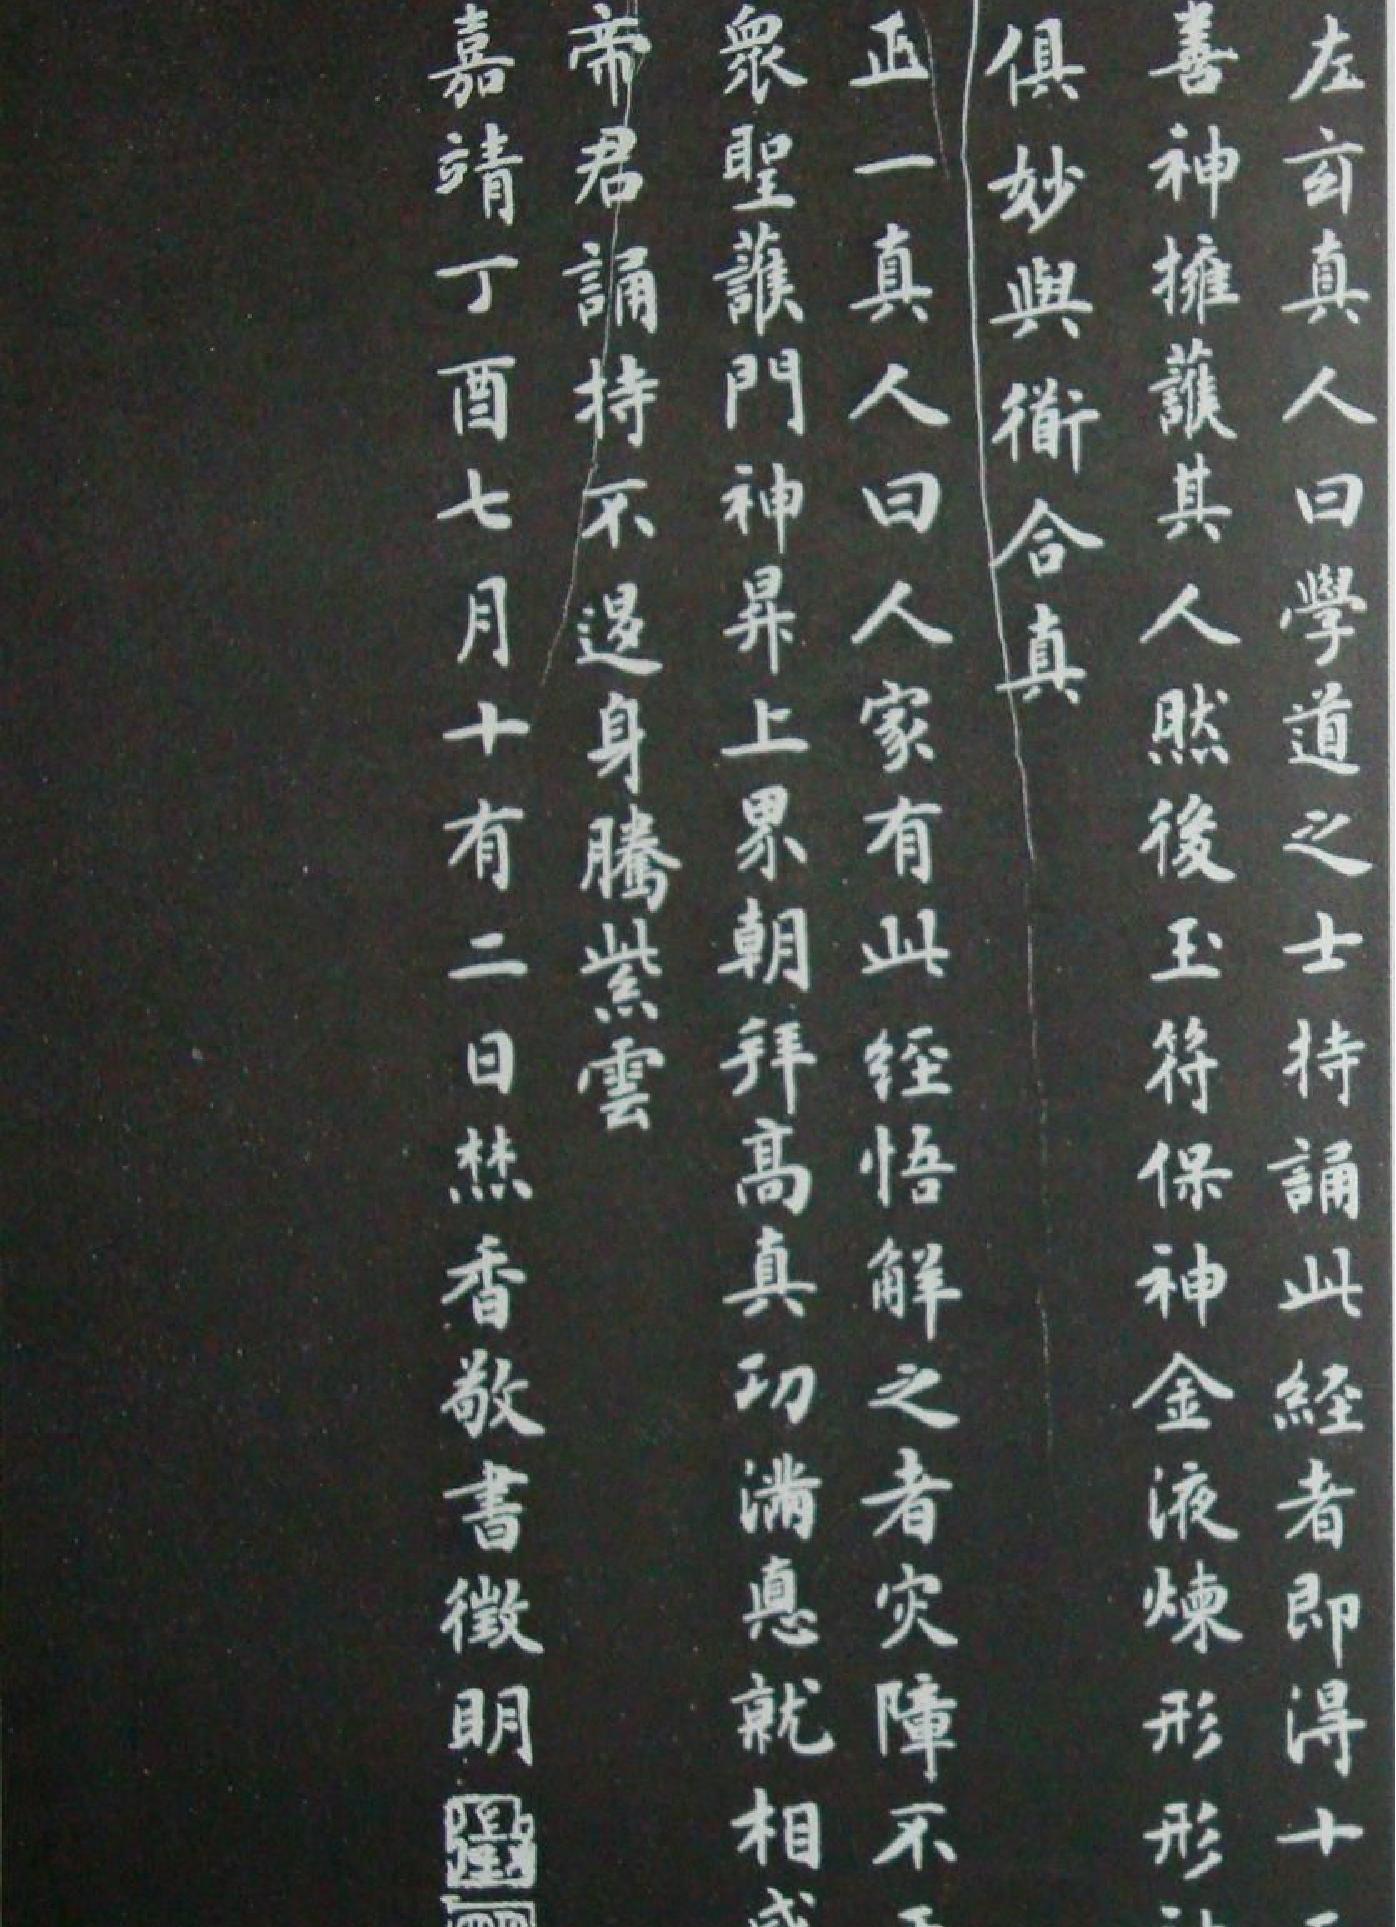 左玄真人曰學道之士持誦此經者即得十
善神擁護其人然後玉符保神金液煉形形
俱妙與衜合真
正一真人曰人家有此經悟解之者灾障不
衆聖護門神昇上界朝拜高真功滿悳就相感
帝君誦持不退身騰紫雲
嘉靖丁酉七月十有二日焚香敬書徵明